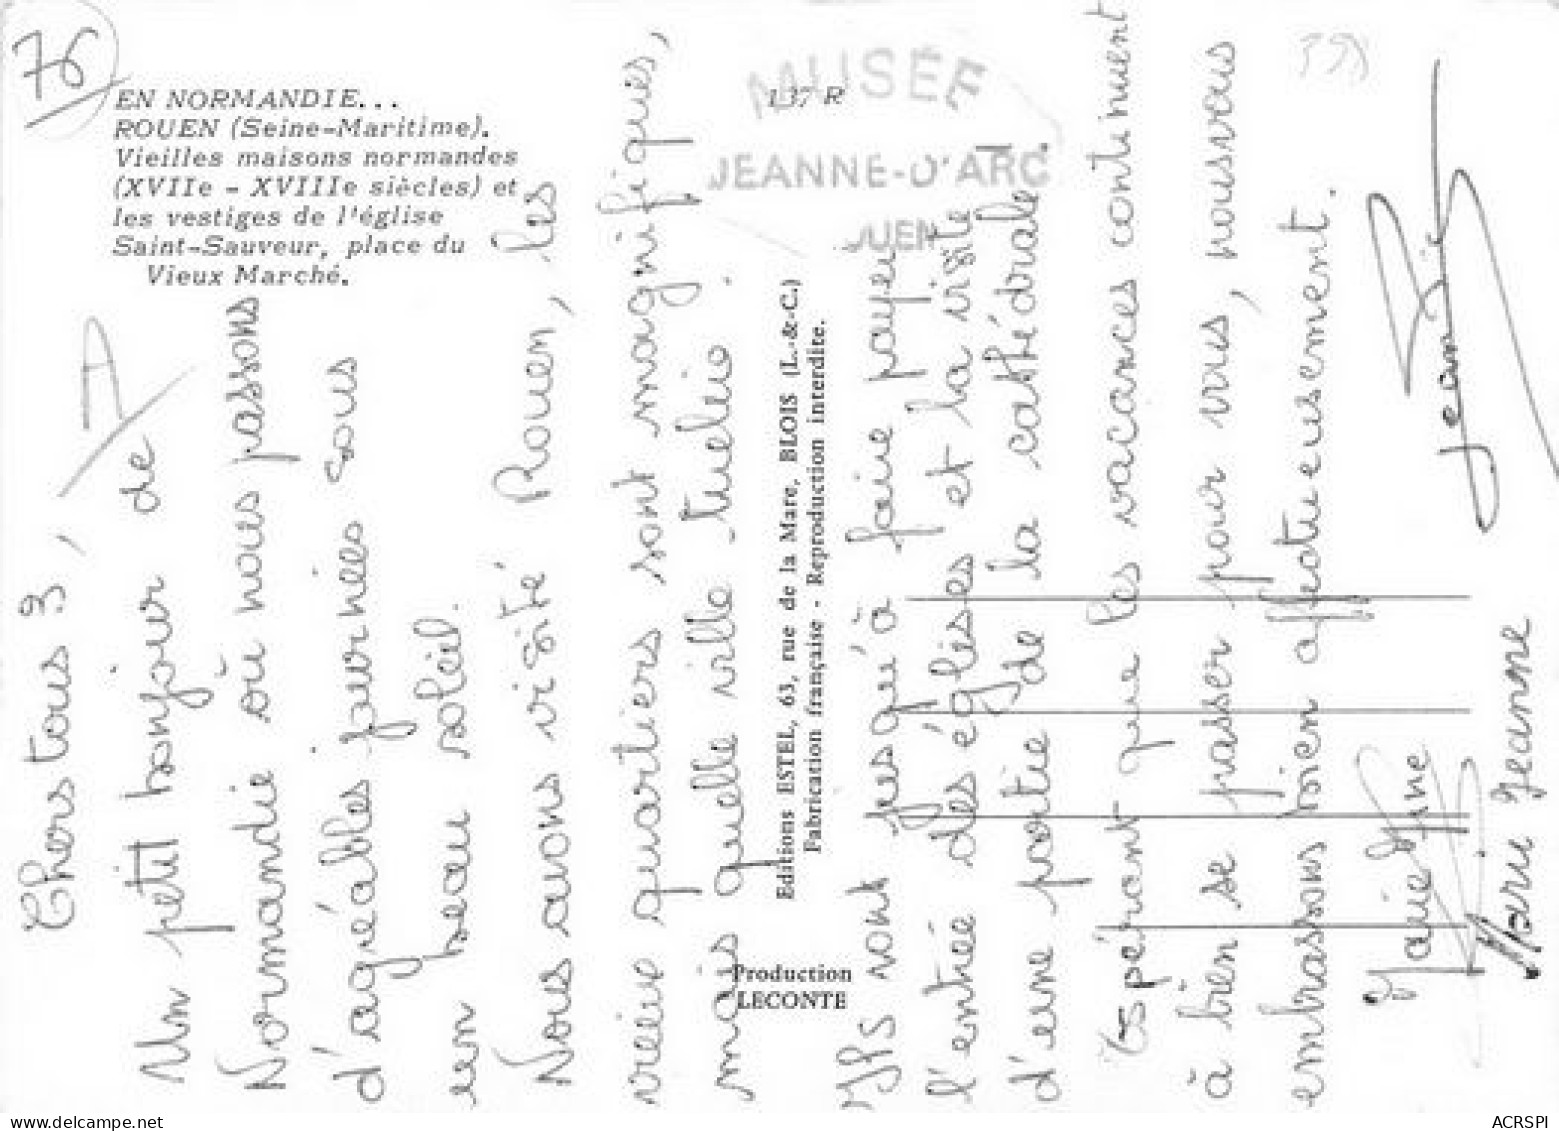 76
EN NORMANDIE...
ROUEN (Seine-Maritime).
Vieilles maisons normandes
(XVIIe - XVIIIe siècles) et
les vestiges de l'église
Saint-Sauveur, place du
Vieux Marché.
137 R
MUSÉE
JEANNE-D'ARC
Editions ESTEL, 63, rue de la Mare, BLOIS (L.-&-C.)
Fabrication française - Reproduction interdite.
Production
LECONTE
A
Chers tous 3,
Un petit bonjour de
Normandie où nous passons
d'agréables journées sous
un beau soleil.
Nous avons visité Rouen, les
vieux quartiers sont magnifiques,
mais quelle ville
Ils vont jusqu'à faire payer
l'entrée des églises et la visite
d'une partie de la cathédrale.
Espérant que les vacances continuent
à bien se passer pour vous, nous vous
embrassons bien affectueusement.
Jeanine
Marie Jeanne
ACRSPI